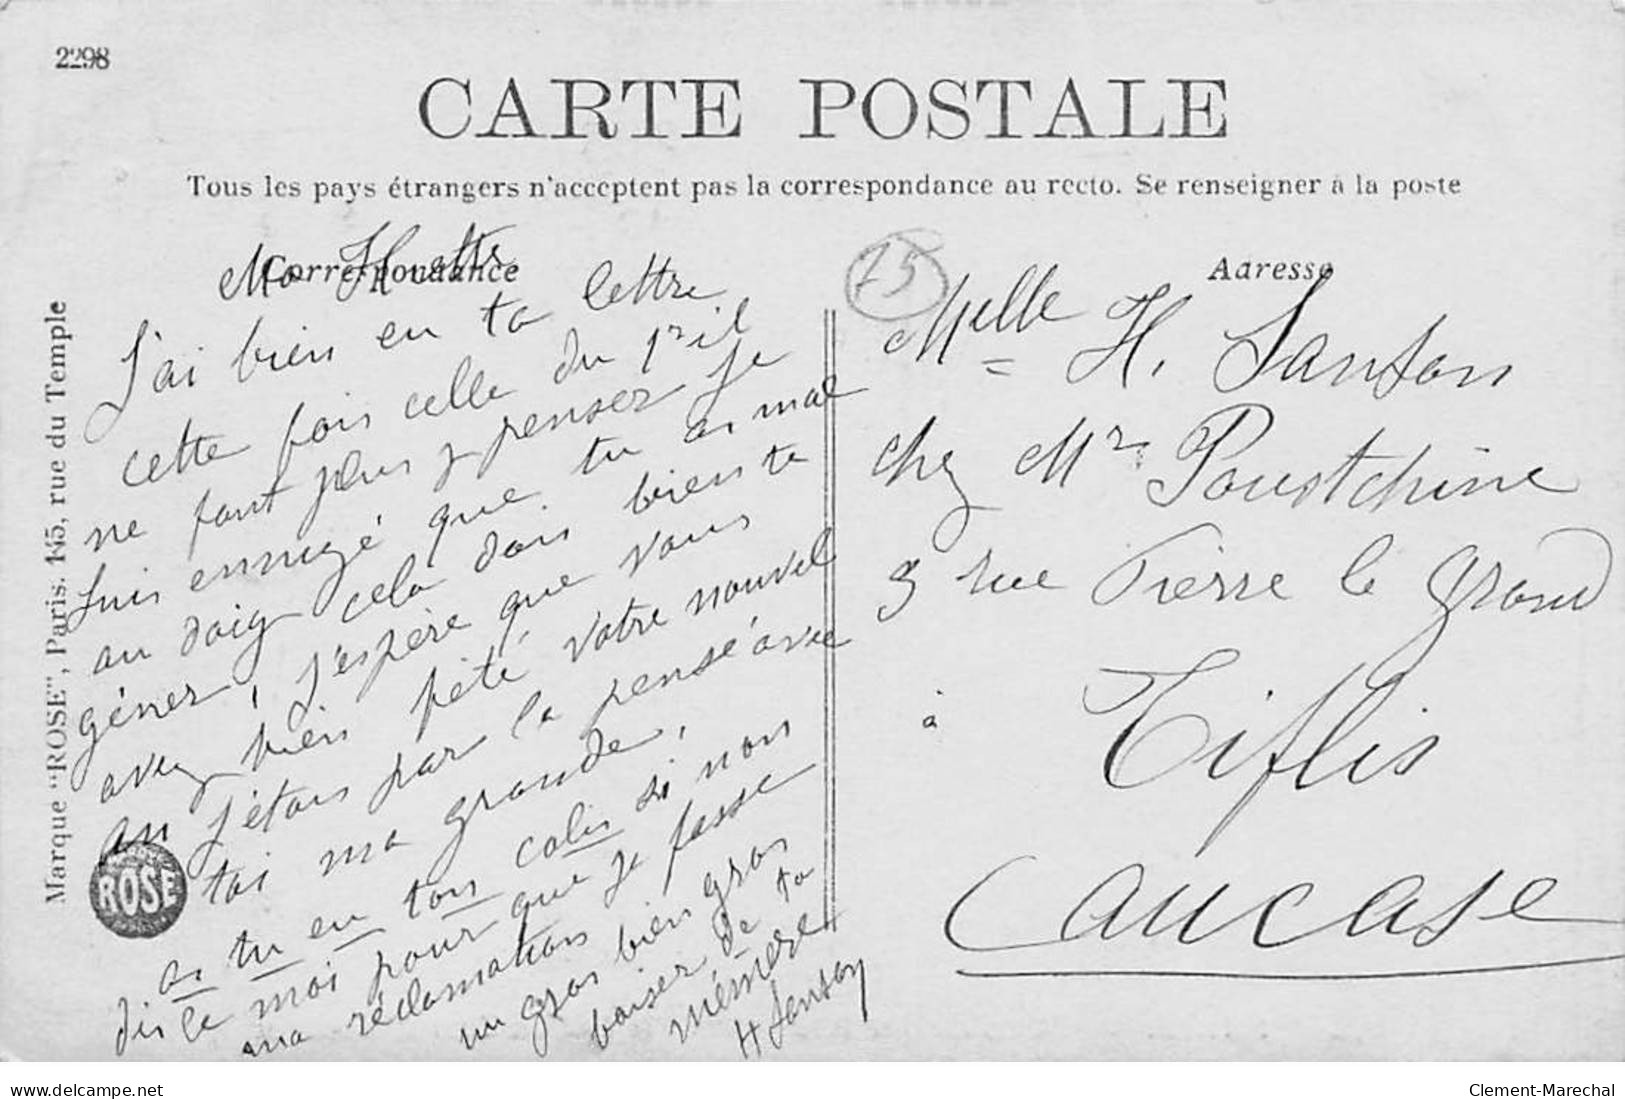 2298
CARTE POSTALE
Tous les pays étrangers n'acceptent pas la correspondance au recto. Se renseigner à la poste
Correspondance
Adresse
Marque "ROSE", Paris. 145, rue du Temple
ROSE
75
Ma
J'ai bien eu ta lettre
cette fois celle du 1r il
ne faut plus y penser je
suis ennuyé que tu as mal
au doig cela dois bien te
géner, j'espère que vous
avez bien fété votre nouvel
an j'étais par la pensé avec
toi ma grande,
as tu eu ton colis si non
dis le moi pour que je fasse
ma réclamation
un gros bien gros
baiser de ta
mémère
H Sanson
Melle H. Sanson
chez Mr Poustchine
9 rue Pierre le grand
à Tiflis
Caucase
delcampe.net
Clement-Marechal